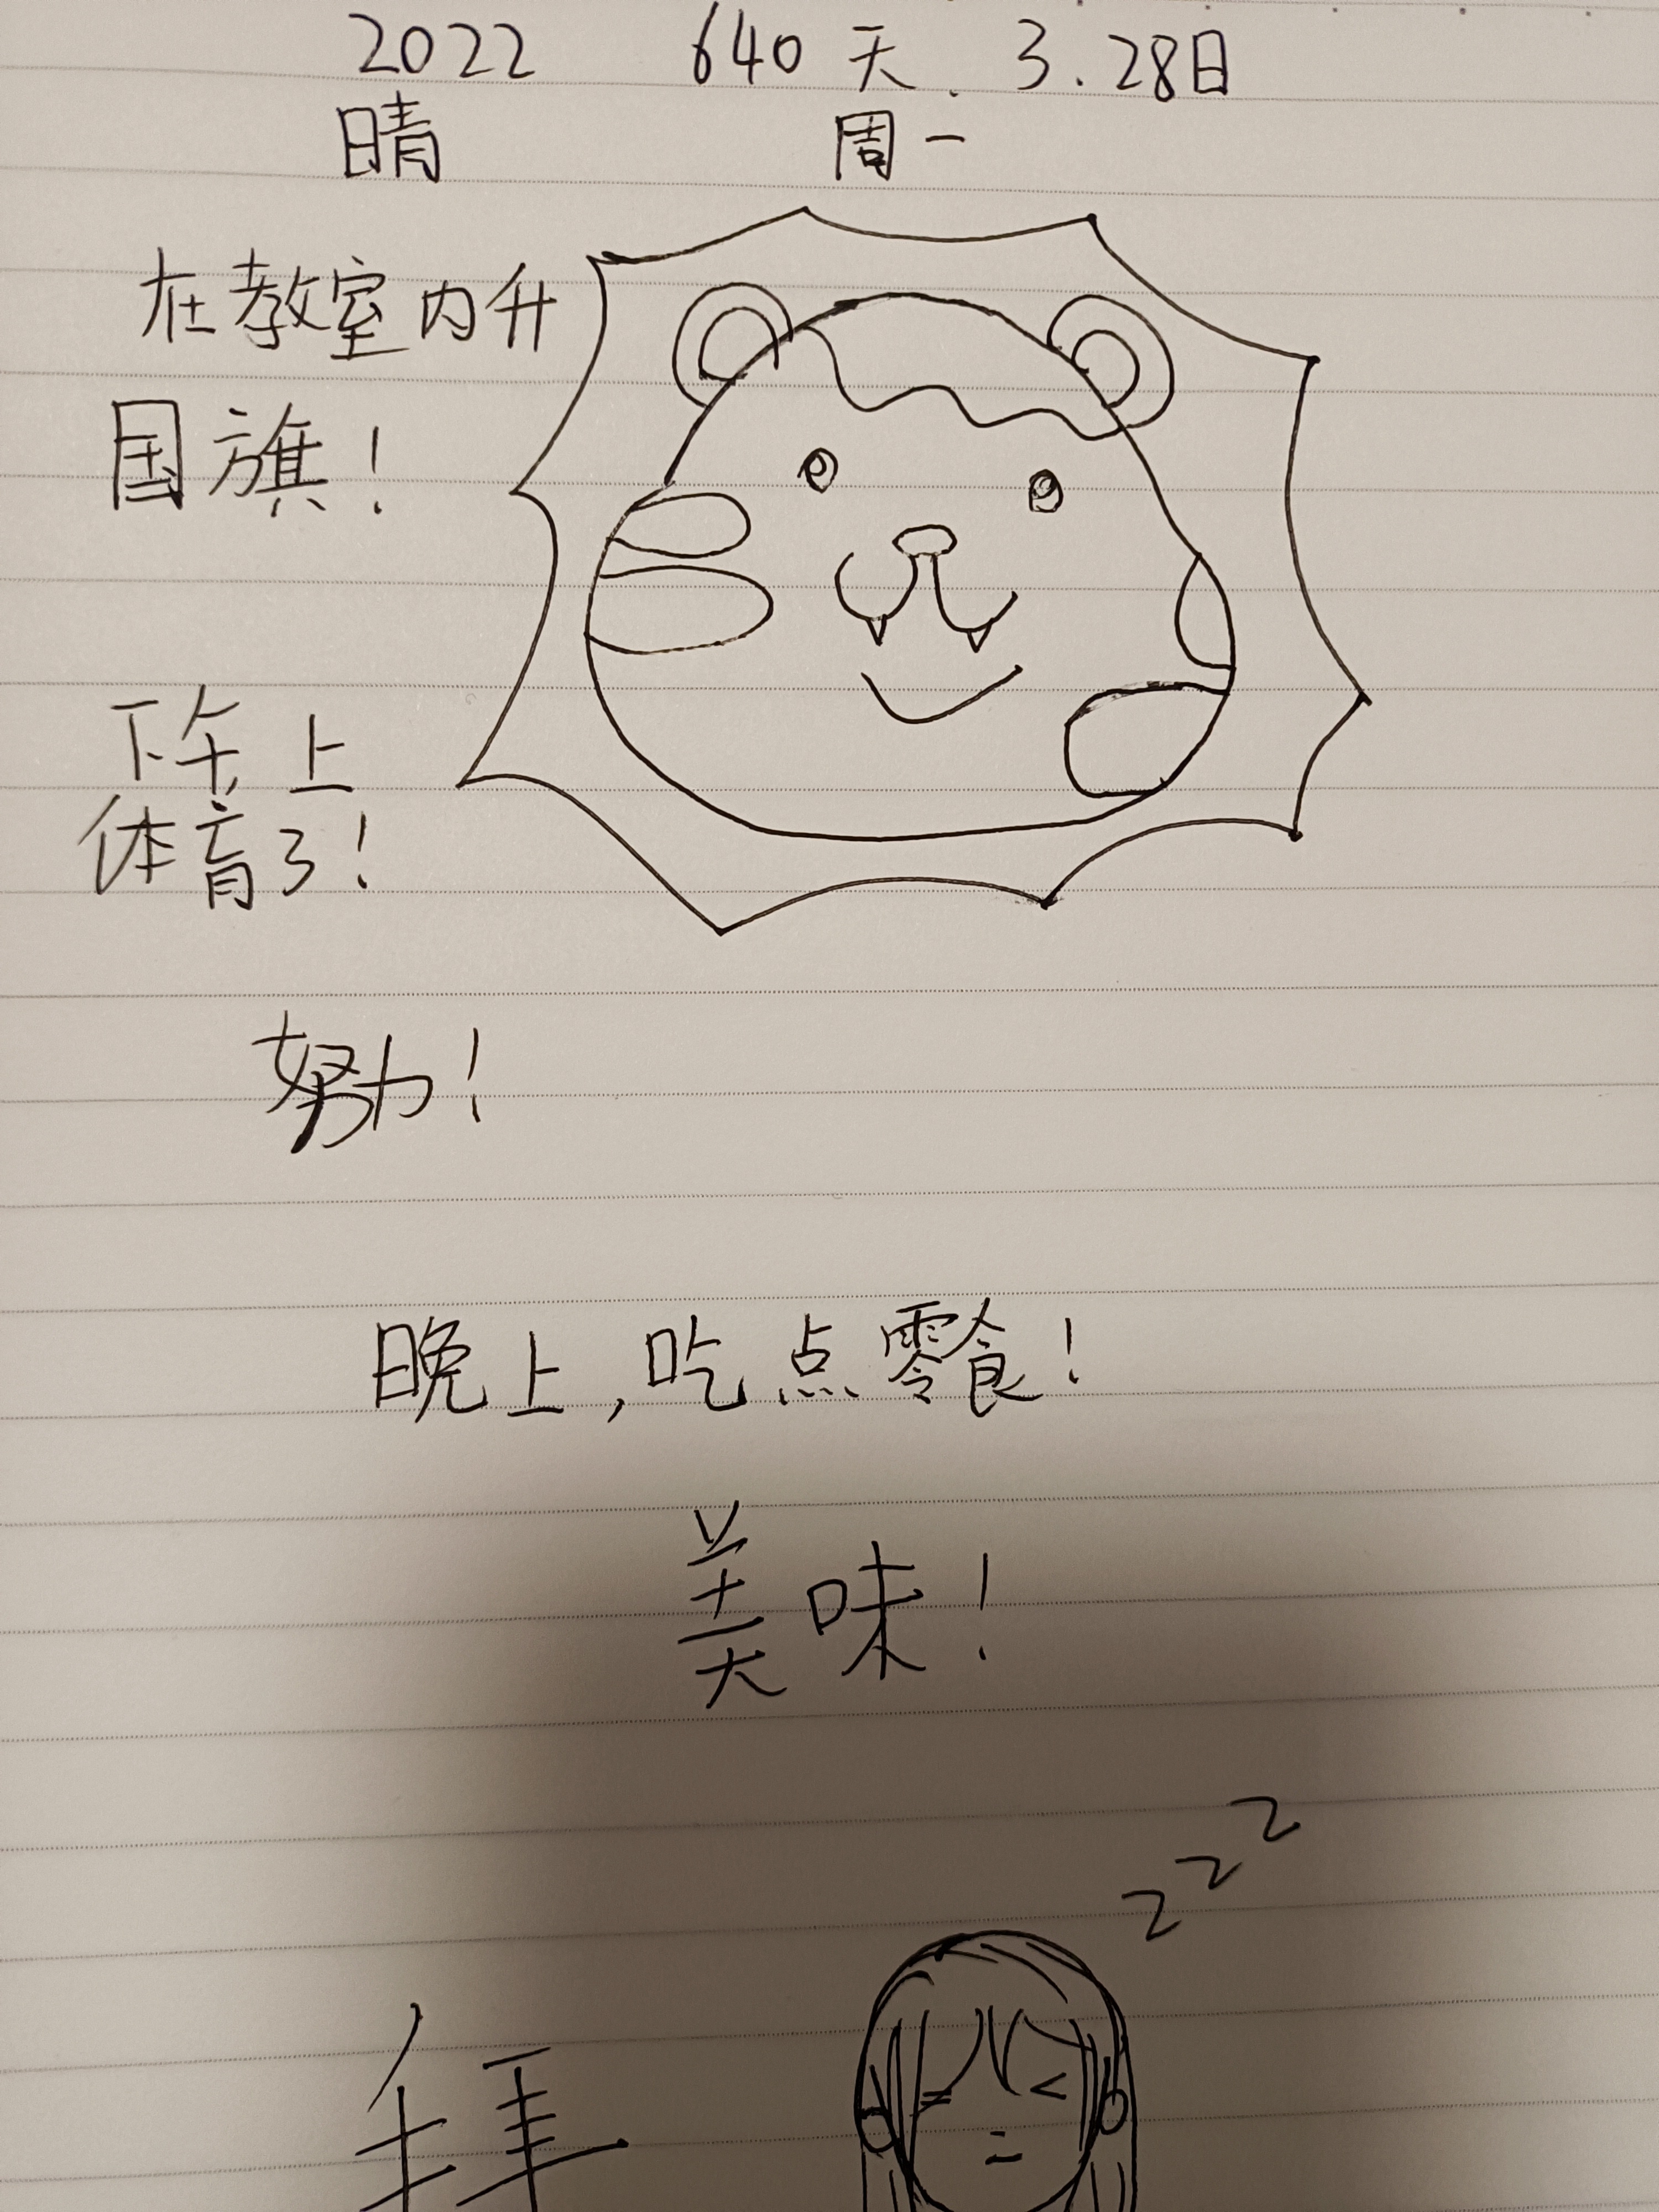 2022 640天. 3.28日
晴 周一
在教室内升
国旗!
下午,上
体育了!
努力!
晚上,吃点零食!
美味!
z z z
拜